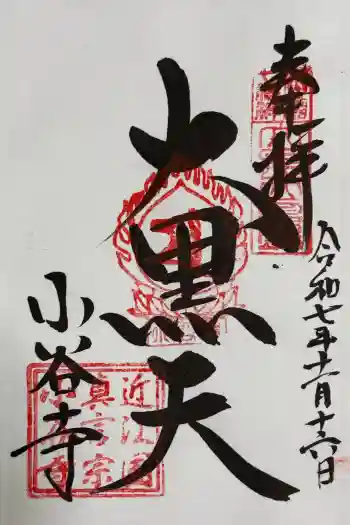 奉拝
令和七年十一月十六日
大黒天
小谷寺
近江国
真言宗
小谷寺